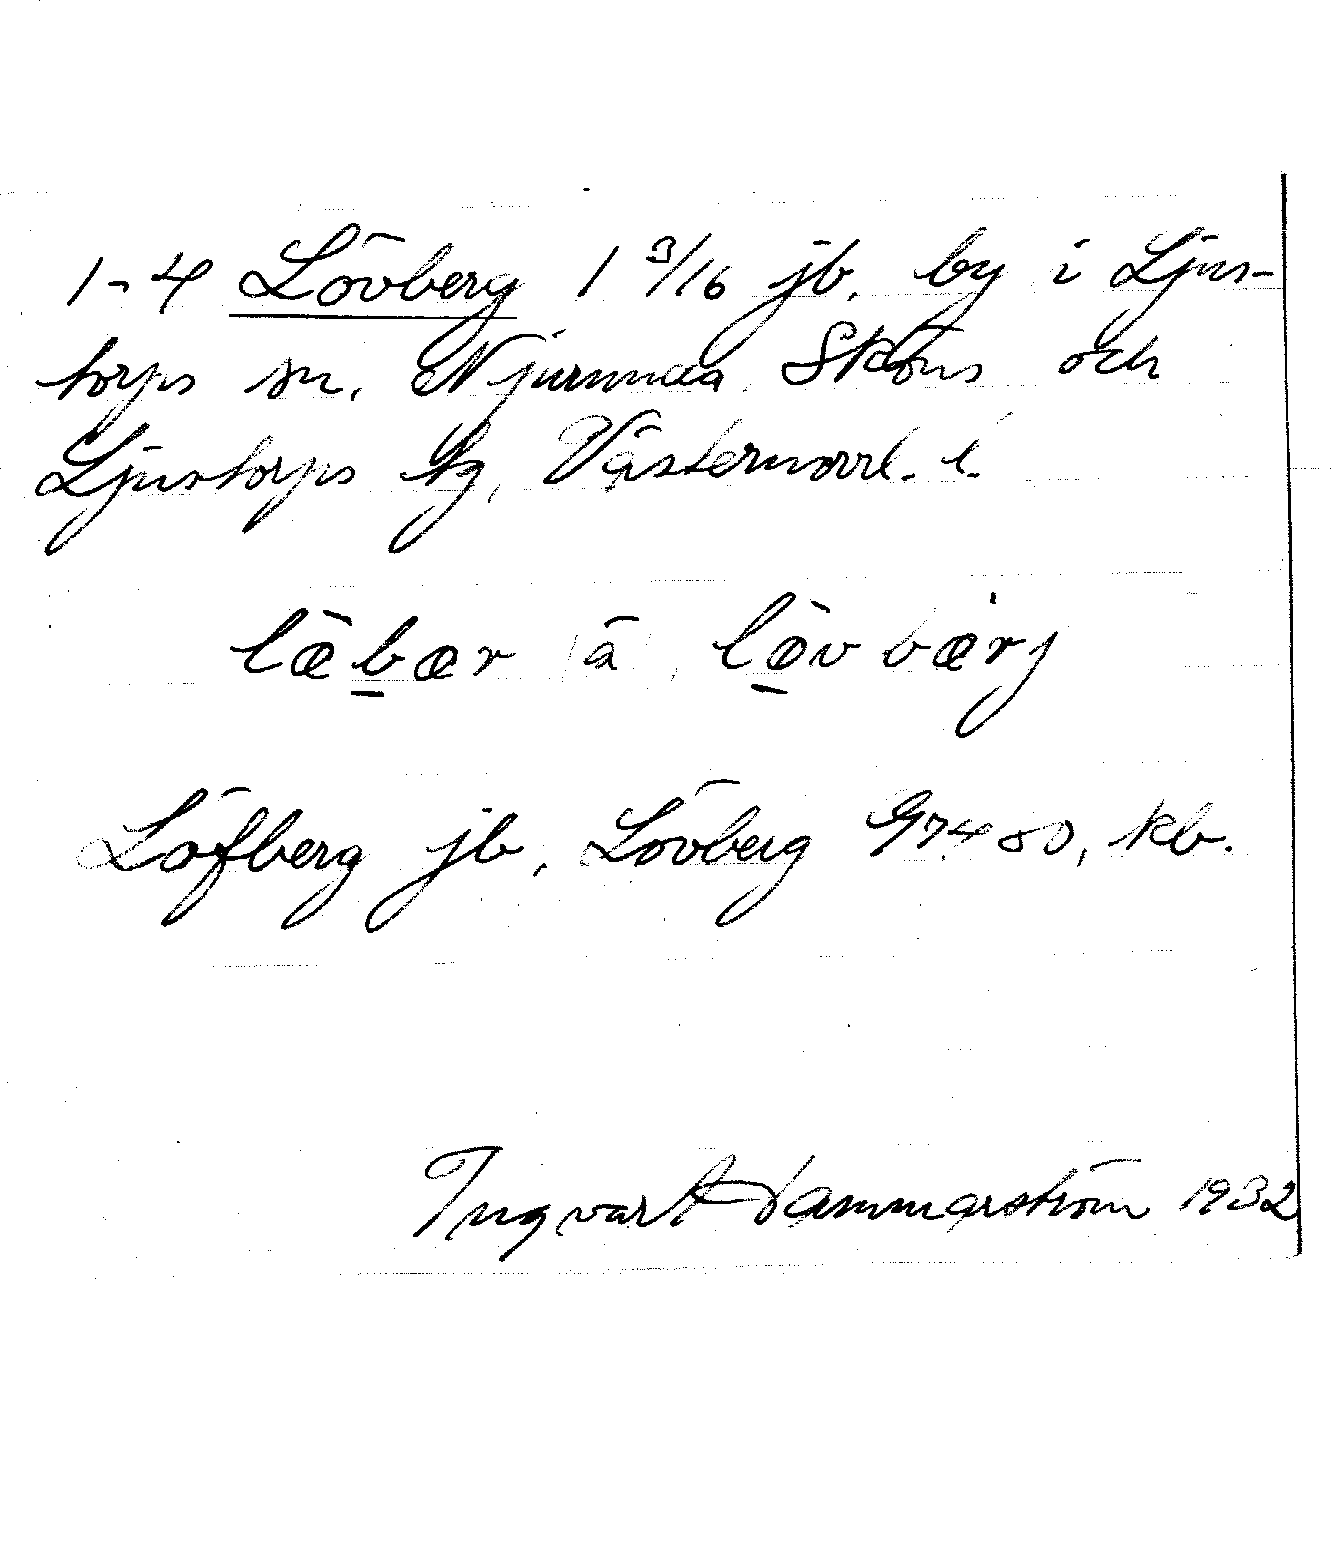 1-4 Lövberg 1 3/16 jb. by i Ljus-
torps sn. Njurunda Sköns och
Ljustorps tg, Västernorrl. l.
læ̀bær (ä) lø̀vbærj
Löfberg jb, Lövberg GV 80, kb.
Ingvart Hammarström 1932